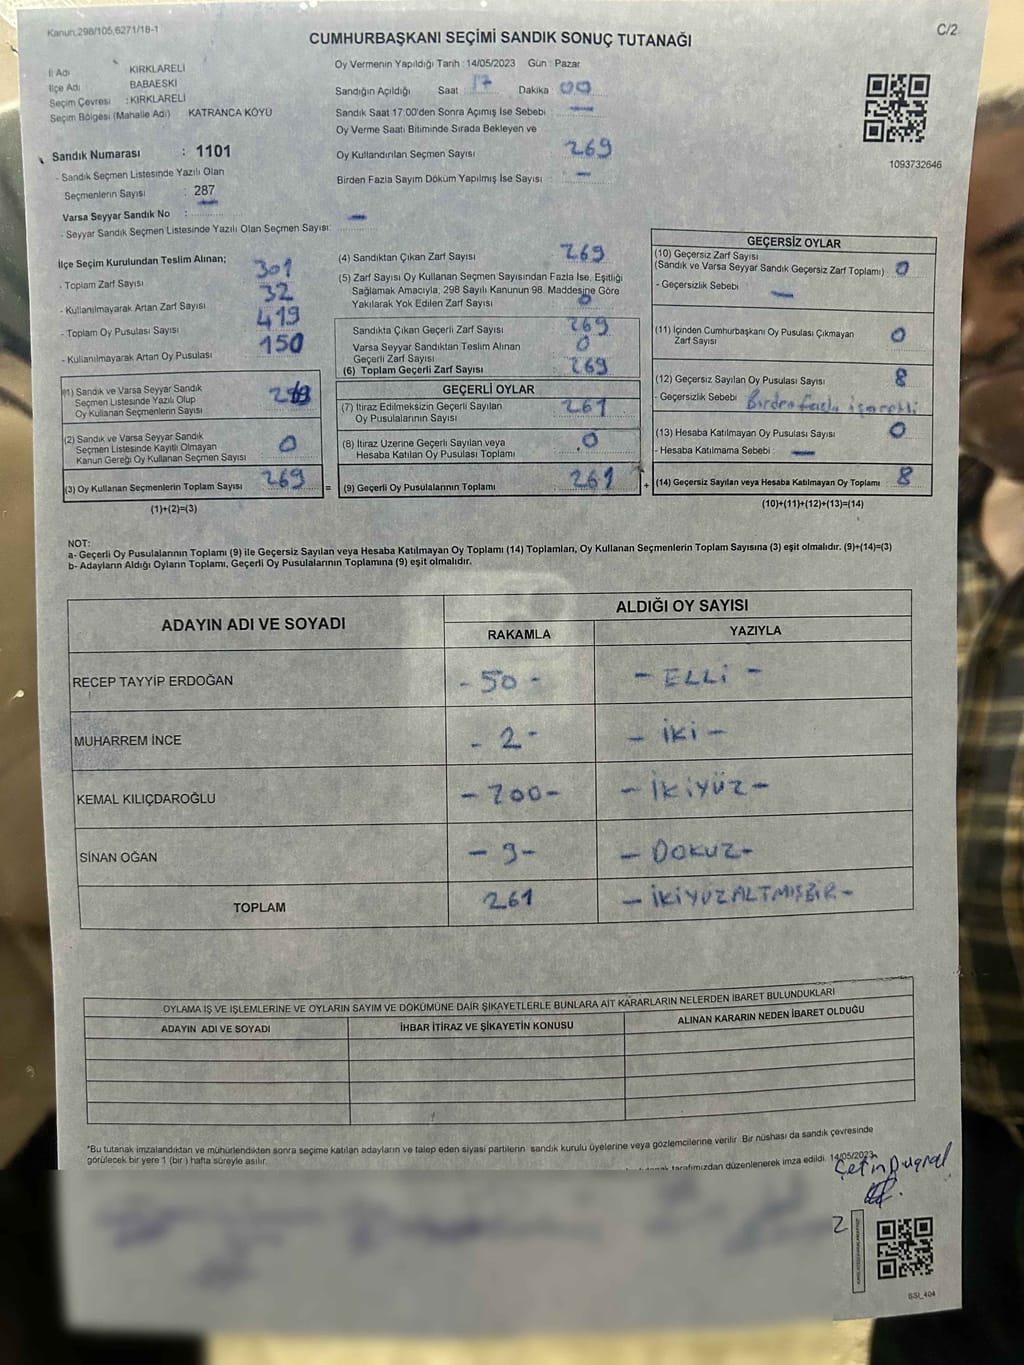 Kanun,298/105,6271/18-1
C/2
CUMHURBAŞKANI SEÇİMİ SANDIK SONUÇ TUTANAĞI
İl Adı KIRKLARELİ
İlçe Adı BABAESKİ
Seçim Çevresi : KIRKLARELİ
Seçim Bölgesi (Mahalle Adı) KATRANCA KÖYÜ
Sandık Numarası : 1101
- Sandık Seçmen Listesinde Yazılı Olan
Seçmenlerin Sayısı : 287
Varsa Seyyar Sandık No : —
- Seyyar Sandık Seçmen Listesinde Yazılı Olan Seçmen Sayısı:
Oy Vermenin Yapıldığı Tarih : 14/05/2023 Gün : Pazar
Sandığın Açıldığı Saat 17 Dakika 00
Sandık Saat 17:00'den Sonra Açımış İse Sebebi —
Oy Verme Saati Bitiminde Sırada Bekleyen ve
Oy Kullandırılan Seçmen Sayısı 269
Birden Fazla Sayım Döküm Yapılmış İse Sayısı —
1093732646
İlçe Seçim Kurulundan Teslim Alınan;
- Toplam Zarf Sayısı 301
- Kullanılmayarak Artan Zarf Sayısı 32
- Toplam Oy Pusulası Sayısı 419
- Kullanılmayarak Artan Oy Pusulası 150
(1) Sandık ve Varsa Seyyar Sandık
Seçmen Listesinde Yazılı Olup
Oy Kullanan Seçmenlerin Sayısı
(2) Sandık ve Varsa Seyyar Sandık
Seçmen Listesinde Kayıtlı Olmayan
Kanun Gereği Oy Kullanan Seçmen Sayısı 0
(3) Oy Kullanan Seçmenlerin Toplam Sayısı 269
(1)+(2)=(3)
(4) Sandıktan Çıkan Zarf Sayısı 269
(5) Zarf Sayısı Oy Kullanan Seçmen Sayısından Fazla İse, Eşitliği
Sağlamak Amacıyla, 298 Sayılı Kanunun 98. Maddesine Göre
Yakılarak Yok Edilen Zarf Sayısı 0
Sandıkta Çıkan Geçerli Zarf Sayısı 269
Varsa Seyyar Sandıktan Teslim Alınan
Geçerli Zarf Sayısı 0
(6) Toplam Geçerli Zarf Sayısı 269
GEÇERLİ OYLAR
(7) İtiraz Edilmeksizin Geçerli Sayılan
Oy Pusulalarının Sayısı 261
(8) İtiraz Üzerine Geçerli Sayılan veya
Hesaba Katılan Oy Pusulası Toplamı 0
= (9) Geçerli Oy Pusulalarının Toplamı 261
GEÇERSİZ OYLAR
(10) Geçersiz Zarf Sayısı
(Sandık ve Varsa Seyyar Sandık Geçersiz Zarf Toplamı) 0
- Geçersizlik Sebebi —
(11) İçinden Cumhurbaşkanı Oy Pusulası Çıkmayan
Zarf Sayısı 0
(12) Geçersiz Sayılan Oy Pusulası Sayısı 8
- Geçersizlik Sebebi Birden fazla işaretli
(13) Hesaba Katılmayan Oy Pusulası Sayısı 0
- Hesaba Katılmama Sebebi : —
+ (14) Geçersiz Sayılan veya Hesaba Katılmayan Oy Toplamı 8
(10)+(11)+(12)+(13)=(14)
NOT:
a- Geçerli Oy Pusulalarının Toplamı (9) ile Geçersiz Sayılan veya Hesaba Katılmayan Oy Toplamı (14) Toplamları, Oy Kullanan Seçmenlerin Toplam Sayısına (3) eşit olmalıdır. (9)+(14)=(3)
b- Adayların Aldığı Oyların Toplamı, Geçerli Oy Pusulalarının Toplamına (9) eşit olmalıdır.
ADAYIN ADI VE SOYADI ALDIĞI OY SAYISI
RAKAMLA YAZIYLA
RECEP TAYYİP ERDOĞAN - 50 - - ELLİ -
MUHARREM İNCE - 2 - - İKİ -
KEMAL KILIÇDAROĞLU - 200 - - İKİYÜZ -
SİNAN OĞAN - 9 - - DOKUZ -
TOPLAM 261 - İKİYÜZALTMIŞBİR -
OYLAMA İŞ VE İŞLEMLERİNE VE OYLARIN SAYIM VE DÖKÜMÜNE DAİR ŞİKAYETLERLE BUNLARA AİT KARARLARIN NELERDEN İBARET BULUNDUKLARI
ADAYIN ADI VE SOYADI İHBAR İTİRAZ VE ŞİKAYETİN KONUSU ALINAN KARARIN NEDEN İBARET OLDUĞU
*Bu tutanak imzalandıktan ve mühürlendikten sonra seçime katılan adayların ve talep eden siyasi partilerin sandık kurulu üyelerine veya gözlemcilerine verilir. Bir nüshası da sandık çevresinde
görülecek bir yere 1 (bir) hafta süreyle asılır.
tarafımızdan düzenlenerek imza edildi. 14/05/2023
Çetin
2
SSI_404